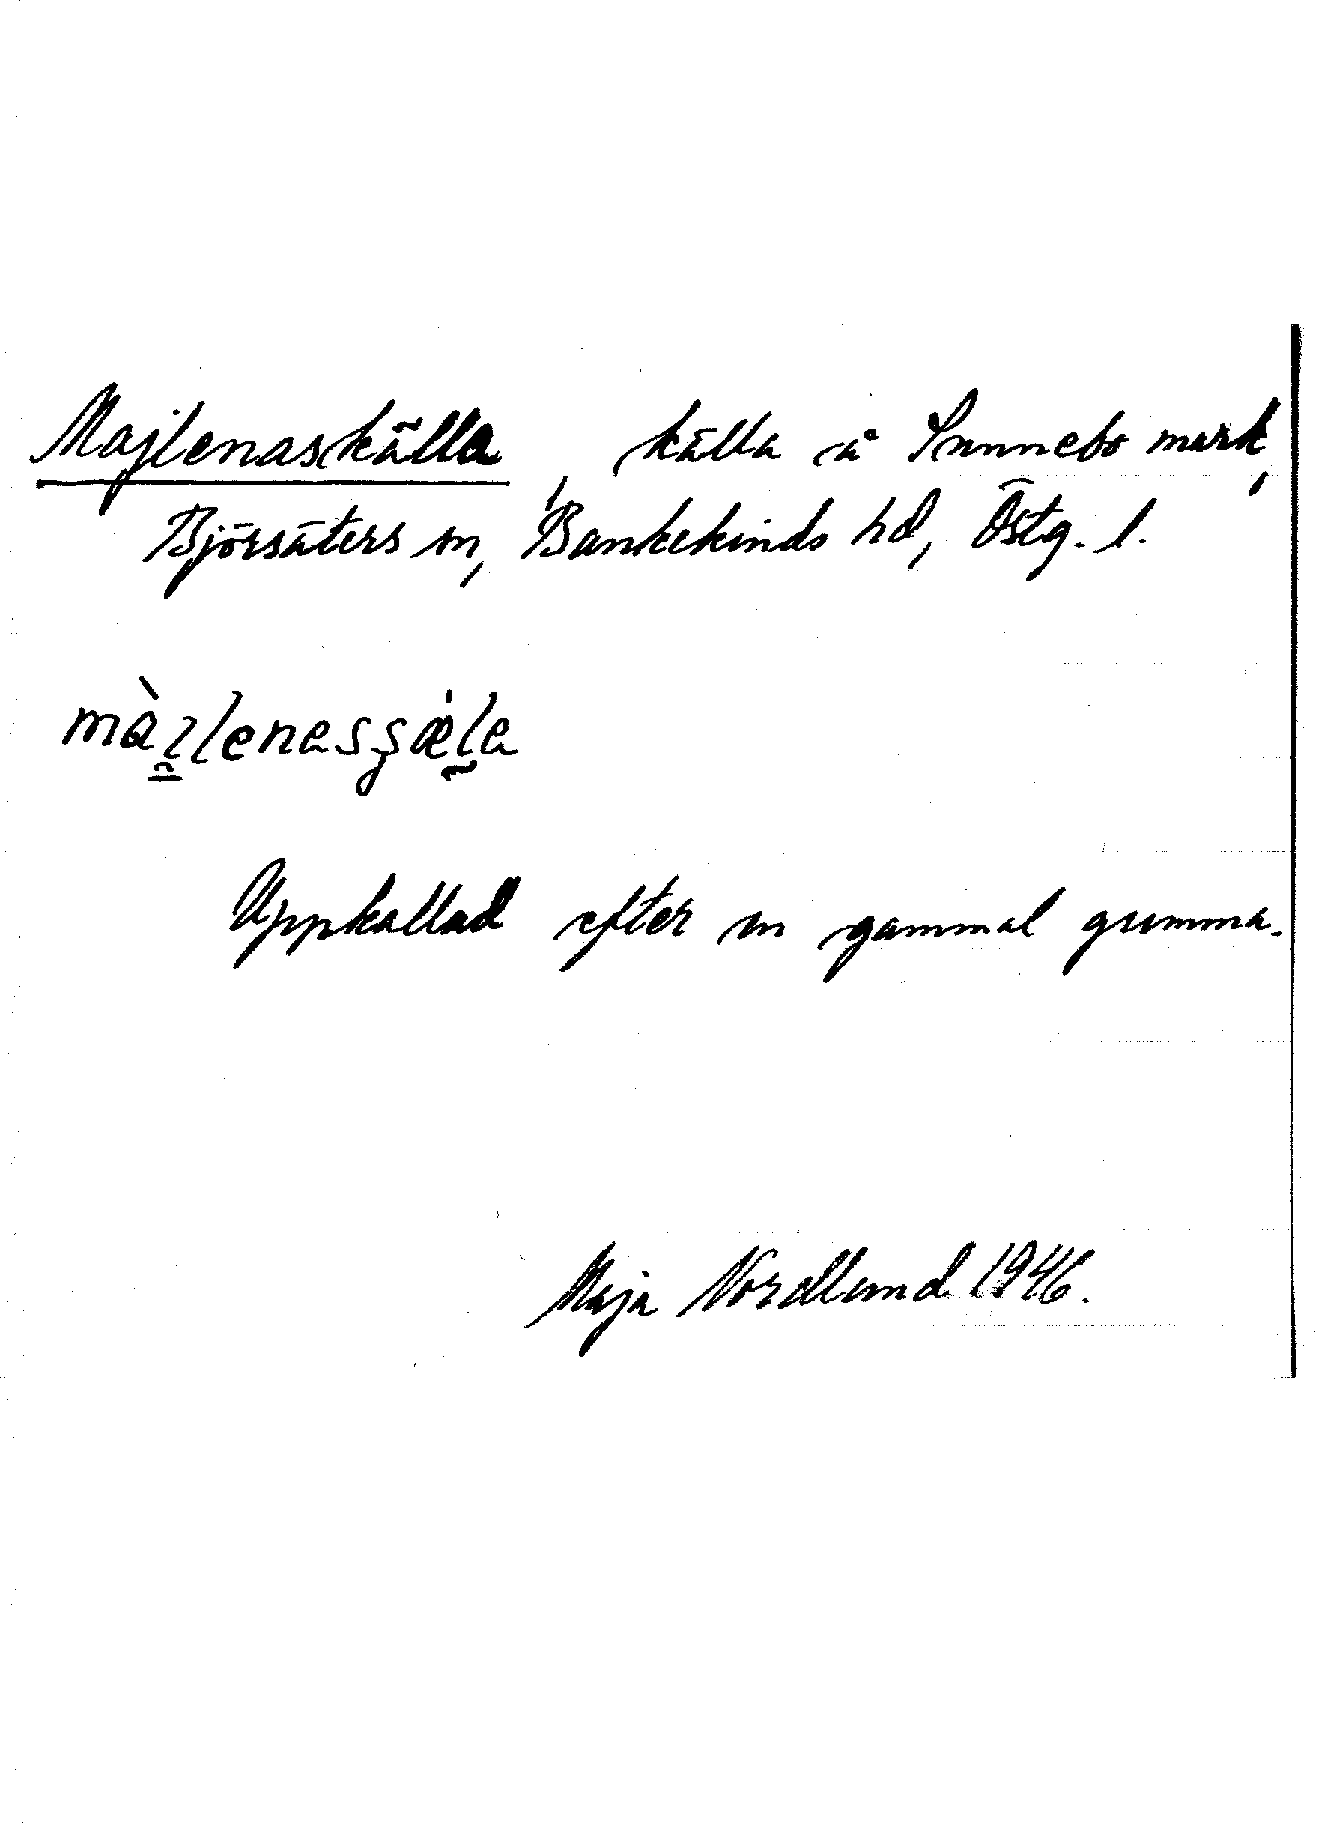 Majlenaskälla, källa å Sunnebo mark,
Björsäters sn, Bankekinds hd, Östg. l.
Uppkallad efter en gammal gumma.
Maja Nordlund 1946.